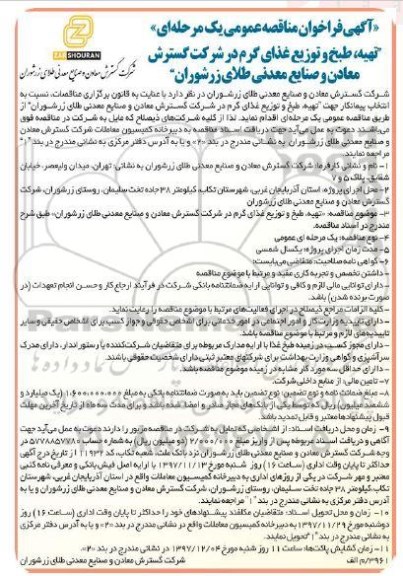 ZARSHOURAN
شرکت گسترش معادن و صنایع معدنی طلای زرشوران
«آگهی فراخوان مناقصه عمومی یک مرحله‌ای»
"تهیه، طبخ و توزیع غذای گرم در شرکت گسترش
معادن و صنایع معدنی طلای زرشوران"
شرکت گسترش معادن و صنایع معدنی طلای زرشوران در نظر دارد با عنایت به قانون برگزاری مناقصات، نسبت به
انتخاب پیمانکار جهت "تهیه، طبخ و توزیع غذای گرم در شرکت گسترش معادن و صنایع معدنی طلای زرشوران" از
طریق مناقصه عمومی یک مرحله‌ای اقدام نماید. لذا از کلیه شرکت‌های ذیصلاح که مایل به شرکت در مناقصه فوق
می‌باشند دعوت به عمل می‌آید جهت دریافت اسناد مناقصه به دبیرخانه کمیسیون معاملات شرکت گسترش معادن
و صنایع معدنی طلای زرشوران به نشانی مندرج در بند «۲» و یا به آدرس دفتر مرکزی به نشانی مندرج در بند "۱"
مراجعه نمایند.
۱- نام و نشانی کارفرما: شرکت گسترش معادن و صنایع معدنی طلای زرشوران به نشانی: تهران، میدان ولیعصر، خیابان
شقایق، پلاک ۵ و ۷
۲- محل اجرای پروژه: استان آذربایجان غربی، شهرستان تکاب، کیلومتر ۳۸ جاده تخت سلیمان، روستای زرشوران، شرکت
گسترش معادن و صنایع معدنی طلای زرشوران
۳- موضوع مناقصه: «تهیه، طبخ و توزیع غذای گرم در شرکت گسترش معادن و صنایع معدنی طلای زرشوران» طبق شرح
مندرج در اسناد مناقصه.
۴- نوع مناقصه: یک مرحله ای عمومی
۵- مدت زمان اجرای پروژه: یکسال شمسی
۶- گواهی نامه صلاحیت: متقاضی می‌بایست:
- داشتن تخصص و تجربه کاری مفید و مرتبط با موضوع مناقصه
- دارای توانایی مالی لازم و کافی و توانایی ارایه ضمانتنامه بانکی شرکت در فرآیند ارجاع کار و حسن انجام تعهدات (در
صورت برنده شدن) باشد.
- کلیه الزامات مراجع ذیصلاح در اجرای فعالیت‌های مرتبط با موضوع مناقصه را رعایت نماید.
- دارای تاییدیه وزارت کار و امور اجتماعی در امور خدماتی برای اشخاص حقوقی و جواز کسب برای اشخاص حقیقی و سایر
تاییدیه‌های لازم و مرتبط با موضوع مناقصه باشد.
- دارای مجوز کسب در زمینه طبخ غذا با ارایه مدارک مربوطه برای متقاضیان شرکت‌کننده یا رستوراندار، دارای مدرک
سرآشپزی و گواهی وزارت بهداشت برای شرکتهای معتبر ثبتی دارای شخصیت حقوقی باشند.
- دارای حداقل سه مورد کار مشابه در زمینه موضوع مناقصه باشد.
۷- تامین مالی: از منابع داخلی شرکت.
۸- مبلغ ضمانت نامه و نوع تضمین: نوع تضمین باید به صورت ضمانتنامه بانکی به مبلغ ۱.۶۰۰.۰۰۰.۰۰۰ (یک میلیارد و
ششصد میلیون) ریال که توسط یکی از بانک‌های مجاز صادر و امضا شده باشد و برای مدت سه ماه از تاریخ آخرین مهلت
قبول پیشنهادها معتبر و قابل تمدید باشد.
۹- زمان و محل دریافت اسناد: از اشخاصی که تمایل به شرکت در مناقصه مزبور را دارند دعوت به عمل می‌آید جهت
آگاهی و دریافت اسناد مربوطه پس از واریز مبلغ ۲/۰۰۰/۰۰۰ (دو میلیون ریال) به شماره حساب ۵۷۷۸۸۵۷۷۸۰ در
وجه شرکت گسترش معادن و صنایع معدنی طلای زرشوران نزد بانک ملت، شعبه تکاب، کد ۱۱۹۳۲ از تاریخ درج آگهی
حداکثر تا پایان وقت اداری (ساعت ۱۶) روز شنبه مورخ ۱۳۹۷/۱۱/۱۳ با ارایه اصل فیش بانکی و معرفی نامه کتبی
معتبر و مهر شرکت در یکی از روزهای اداری به دبیرخانه کمیسیون معاملات واقع در استان آذربایجان غربی، شهرستان
تکاب، کیلومتر ۳۸ جاده تخت سلیمان، روستای زرشوران، شرکت گسترش معادن و صنایع معدنی طلای زرشوران و یا به
آدرس دفتر مرکزی به نشانی مندرج در بند "۱" مراجعه نمایند.
۱۰- زمان و محل تحویل اسناد: متقاضیان مکلفند پیشنهادهای خود را حداکثر تا پایان وقت اداری (ساعت ۱۶) روز
دوشنبه مورخ ۱۳۹۷/۱۱/۲۹ به دبیرخانه کمیسیون معاملات واقع در نشانی مندرج در بند «۲» و یا به آدرس دفتر مرکزی
به نشانی مندرج در بند "۱" تحویل نمایند.
۱۱- زمان گشایش پاکت‌ها: ساعت ۱۱ روز شنبه مورخ ۱۳۹۷/۱۲/۰۴ در نشانی مندرج در بند «۲».
۳۹۶۱/م الف شرکت گسترش معادن و صنایع معدنی طلای زرشوران